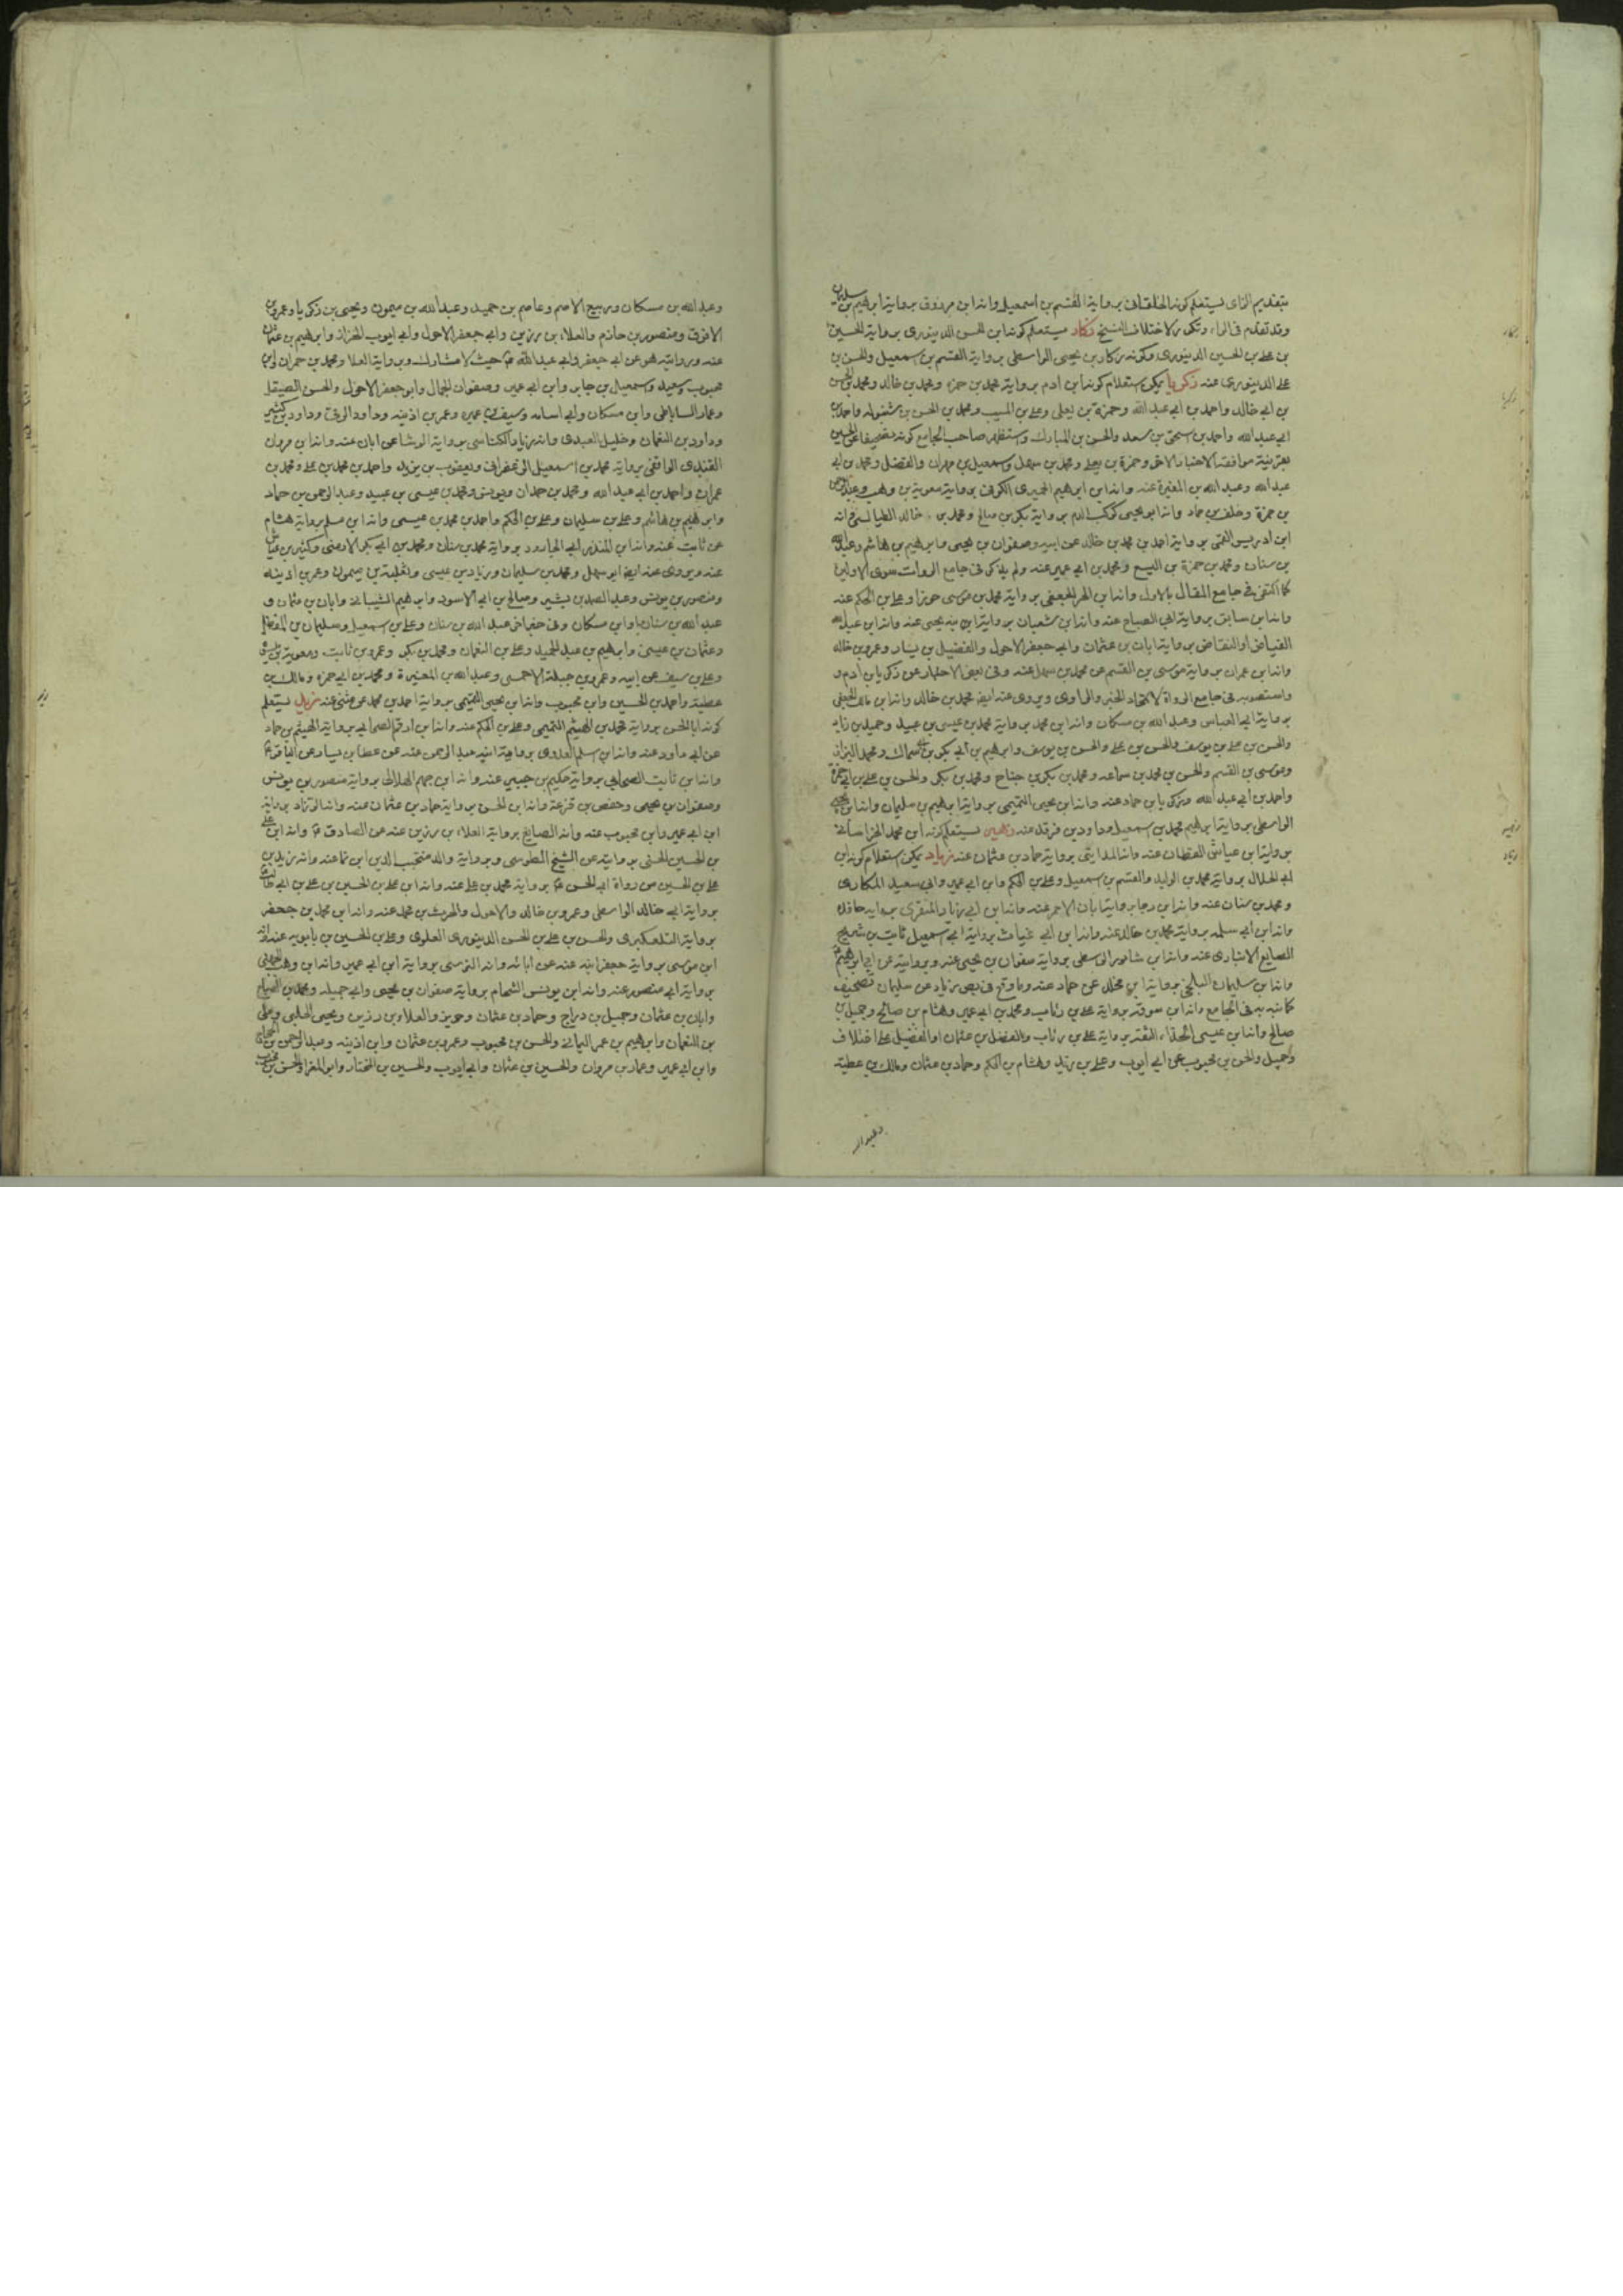 بتقديم الزاى يستعلم كونه الخلقانى برواية القسم بن اسمعيل وانه ابن مرزوق برواية ابراهيم بن سليمان
وقد تقدم فى الراء زكار يستعلم كونه ابن الحسن الدينورى برواية الحسين
بن على بن الحسين الدينورى وكونه زكار بن يحيى الواسطى برواية القسم بن اسمعيل والحسن بن
على الدينورى عنه زكريا يمكن استعلام كونه ابن ادم برواية محمد بن حمزه ومحمد بن خالد ومحمد بن الحسن
بن ابى خالد واحمد بن ابى عبد الله وحمزة بن يعلى وعلى بن المسيب ومحمد بن الحسن بن شنبوله واحمد بن
ابى عبد الله واحمد بن اسحق بن سعد والحسن بن المبارك واستظهر صاحب الجامع كونه
بقرينة موافقة الاخبار الاخر وحمزة بن يعلى ومحمد بن سهل واسمعيل بن مهران والفضل ومحمد بن ابى
عبد الله وعبد الله بن المغيرة عنه وانه ابن ابراهيم الحيرى الكوفى برواية معوية بن وهب
بن حمزة وخلف بن حماد وانه ابو يحيى كوكب الدم برواية بكر بن صالح ومحمد بن خالد الطيالسى وانه
ابن ادريس القمى برواية احمد بن محمد بن خالد عن ابيه وصفوان بن يحيى وابراهيم بن هاشم وعبد الله
بن سنان ومحمد بن حمزة بن اليسع ومحمد بن ابى عمير عنه ولم يذكر فى جامع الروات سوى الاولين
كما اكتفى فى جامع المقال بالاول وانه ابن الحر الجعفى برواية محمد بن موسى حوراء وعلى بن الحكم عنه
وانه ابن سابق برواية ابى الصباح عنه وانه ابن شعبان برواية ابن يحيى عنه وانه ابن عبد الله
الفياض او النقاض برواية ابان بن عثمان وابى جعفر الاحول والفضيل بن يسار وعمرو بن خالد
وانه ابن عمران برواية موسى بن القسم عن محمد بن سهل عنه وفى بعض الاخبار عن زكريا بن ادم و
واستصوبه فى جامع الرواة لاتحاد الخبر والراوى ويروى عنه ايضا محمد بن خالد وانه ابن مالك الجعفى
برواية ابى العباس وعبد الله بن مسكان وانه ابن محمد برواية محمد بن عيسى بن عبيد وحميد بن زياد
والحسن بن على بن يوسف والحسن بن على والحسن بن يوسف وابراهيم بن ابى بكر بن سماك ومحمد البزاز
وموسى بن القسم والحسن بن محمد بن سماعه ومحمد بن بكر بن جناح ومحمد بن بكر والحسن بن على بن ابى حمزة
واحمد بن ابى عبد الله وزكريا بن حماد عنه وانه ابن يحيى التميمى برواية ابراهيم بن سليمان وانه ابن يحيى
الواسطى برواية ابراهيم بن محمد بن اسمعيل وداود بن فرقد عنه زهير يستعلم كونه ابن محمد الخراسانى
برواية ابن عياش القطان عنه وانه المداينى برواية حماد بن عثمان عنه زياد يمكن استعلام كونه ابن
ابى الحلال برواية محمد بن الوليد والقسم بن اسمعيل وعلى بن الحكم وابن ابى عمير وابى سعيد المكارى
ومحمد بن سنان عنه وانه ابن رجا برواية ابان الاحمر عنه وانه ابن ابى زياد المنقرى برواية
وانه ابن ابى سلمه برواية محمد بن خالد عنه وانه ابن ابى غياث برواية ابى اسمعيل ثابت بن شريح
الصايغ الانبارى عنه وانه ابن شابور الواسطى برواية صفوان بن يحيى عنه وبروايته عن ابى ابراهيم
وانه ابن سليمان البلخى برواية ابن مخلد عن حماد عنه وما وقع فى بعض زياد عن سليمان تصحيف
كما نبه به فى الجامع وانه ابن سوقه برواية على بن رئاب ومحمد بن ابى عمير وهشام بن صالح وجميل بن
صالح وانه ابن عيسى الحذاء الثقه برواية على بن رئاب والفضل بن عثمان او الفضيل على اختلاف
وجميل والحسن بن محبوب عن ابى ايوب وعلى بن زيد وهشام بن الحكم وحماد بن عثمان ومالك بن عطية
وعبد الله
وعبد الله بن مسكان وربيع الاصم وعاصم بن حميد وعبد الله بن ميمون ويحيى بن زكريا وعمرو بن
الازرق ومنصور بن حازم والعلاء بن رزين وابى جعفر الاحول وابى ايوب الخراز وابراهيم بن عثمان
عنه وبروايته هو عن ابى جعفر وابى عبد الله ع حيث لا مشارك وبرواية العلا ومحمد بن حمران وابن
محبوب وسعيد واسمعيل بن جابر وابن ابى عمير وصفوان الجمال وابو جعفر الاحول والحسن الصيقل
وعمار الساباطى وابن مسكان وابى اسامه وسيف بن عميره وعمر بن اذينه وداود الرقى وداود بن كثير
وداود بن النعمان وخليل العبدى وانه زياد الكناسى برواية الوشا عن ابان عنه وانه ابن مروان
القندى الواقفى برواية محمد بن اسمعيل الزعفرانى ويعقوب بن يزيد واحمد بن محمد بن على ومحمد بن
عمران واحمد بن ابى عبد الله ومحمد بن حمدان ويونس ومحمد بن عيسى بن عبيد وعبد الرحمن بن حماد
وابراهيم بن هاشم وعلى بن سليمان وعلى بن الحكم واحمد بن محمد بن عيسى وانه ابن مسلم برواية هشام
عن ثابت عنه وانه ابن المنذر ابى الجارود برواية محمد بن سنان ومحمد بن ابى بكر الارحبى وكثير بن عياش
عنه ويروى عنه ايضا ابو سهل ومحمد بن سليمان وزياد بن عيسى وثعلبة بن ميمون وعمر بن اذينه
ومنصور بن يونس وعبد الصمد بن بشير وصالح بن ابى الاسود وابراهيم الشيبانى وابان بن عثمان و
عبد الله بن سنان وابن مسكان وفى عبد الله بن سنان وعلى بن اسمعيل وسليمان بن المفضل
وعثمان بن عيسى وابراهيم بن عبد الحميد وعلى بن النعمان ومحمد بن بكر وعمرو بن ثابت ومعوية بن
وعلى بن سيف عن ابيه وعمرو بن جبلة الاحمسى وعبد الله بن المغيرة ومحمد بن ابى حمزه ومالك بن
عطية واحمد بن الحسين وابن محبوب وانه ابن يحيى التميمى برواية احمد بن محمد عن مثنى عنه زيد يستعلم
كونه ابا الحسن برواية محمد بن الهيثم التميمى وعلى بن الحكم عنه وانه ابن ارقم الصحابى برواية الهيثم بن حماد
عن ابى داود عنه وانه ابن اسلم العدوى برواية ابنه عبد الرحمن عنه عن عطا بن يسار عن الباقر ع
وانه ابن ثابت الصحابى برواية حكيم بن جبير عنه وانه ابن جهم الهلالى برواية منصور بن يونس
وصفوان بن يحيى وحفص بن قرعة وانه ابن الحسن برواية حماد بن عثمان عنه وانه الزراد برواية
ابن ابى عمير وابن محبوب عنه وانه الصايغ برواية العلاء بن رزين عنه عن الصادق ع وانه ابن على
بن الحسين الحسنى بروايته عن الشيخ الطوسى وبرواية والد منتجب الدين ابن عنه وانه زيد بن
على بن الحسين من رواة ابى الحسن ع برواية محمد بن على عنه وانه ابن على بن الحسين بن على بن ابى طالب
برواية ابى خالد الواسطى وعمرو بن خالد والاحول والحرث بن محمد عنه وانه ابن محمد بن جعفر
برواية التلعكبرى والحسن بن على بن الحسن الدينورى العلوى وعلى بن الحسين بن بابويه عنه وانه
ابن موسى برواية جعفر ابنه عنه عن ابائه وانه النرسى برواية ابن ابى عمير وانه ابن وهب الجهنى
برواية ابى منصور عنه وانه ابن يونس الشحام برواية صفوان بن يحيى وابى جميله ومحمد بن الصباح
وابان بن عثمان وجميل بن دراج وحماد بن عثمان وحريز والعلاء بن رزين ويحيى الحلبى وعلى
بن النعمان وابراهيم بن عمر اليمانى والحسن بن محبوب وعمرو بن عثمان وابن اذينه وعبد الرحمن بن الحجاج
وابن ابى عمير وعمار بن مروان والحسين بن عثمان وابى ايوب والحسين بن المختار وابو المغرا والحسن بن محبوب